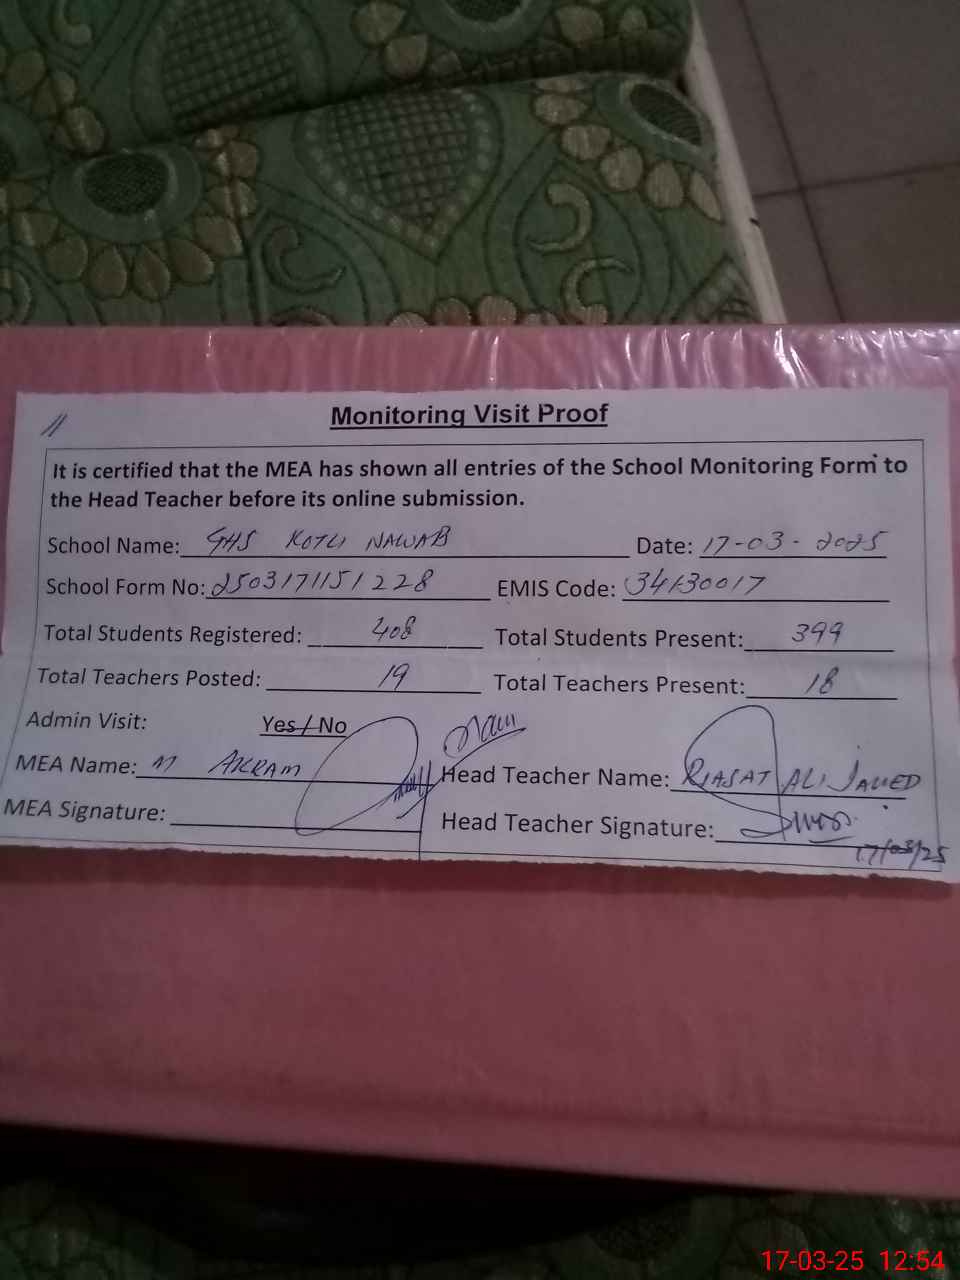 11
Monitoring Visit Proof
It is certified that the MEA has shown all entries of the School Monitoring Form to
the Head Teacher before its online submission.
School Name: GHS KOTLI NAWAB Date: 17-03-2025
School Form No: 2503171151228 EMIS Code: 34130017
Total Students Registered: 408 Total Students Present: 399
Total Teachers Posted: 19 Total Teachers Present: 18
Admin Visit: Yes / No
MEA Name: M AKRAM Head Teacher Name: RIASAT ALI JAVED
MEA Signature: Head Teacher Signature:
17/03/25
17-03-25 12:54